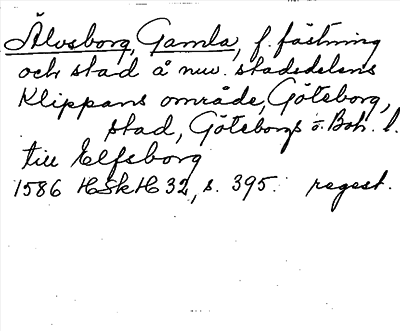 Älvsborg, Gamla, f. fästning
och stad å nuv. stadsdelens
Klippans område, Göteborg,
stad, Göteborgs o. Boh. l.
till Elfsborg
1586 HSkH 32, s. 395. regest.